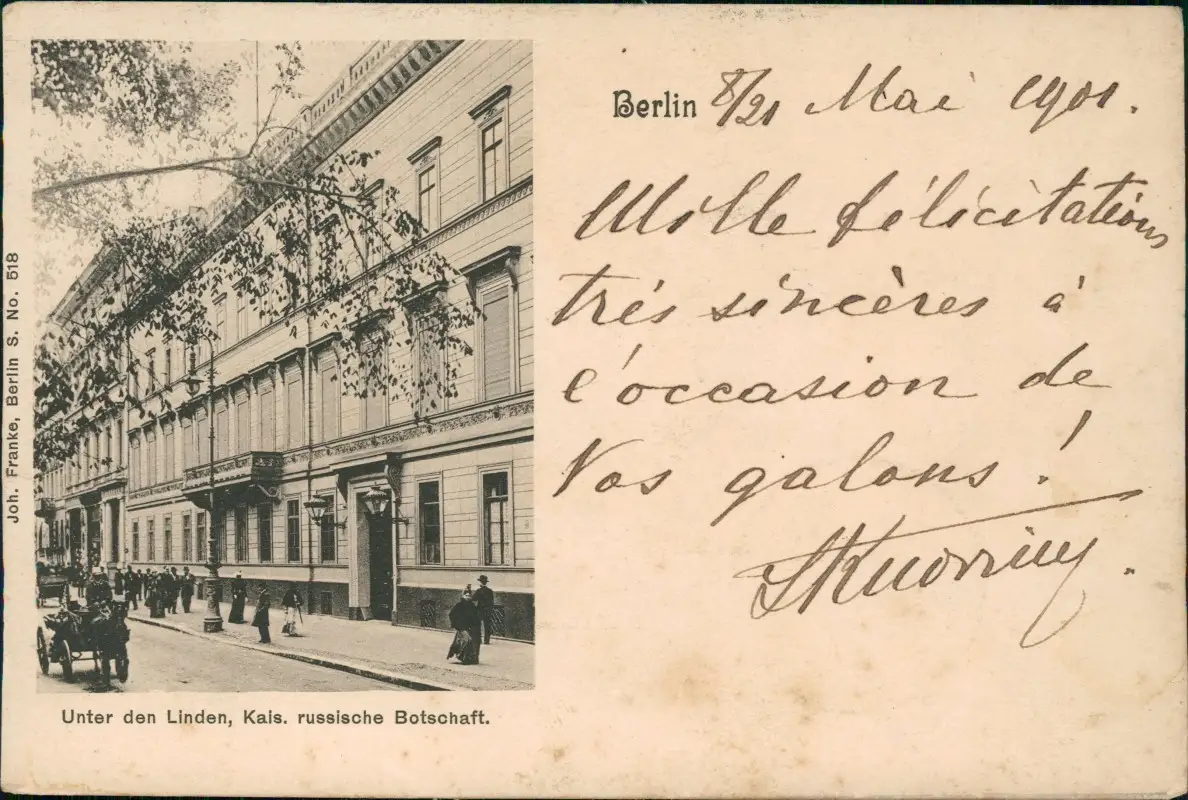 Berlin 8/21 Mai 1901.
Mille félicitations
très sincères à
l'occasion de
Vos galons!
Joh. Franke, Berlin S. No. 518
Unter den Linden, Kais. russische Botschaft.